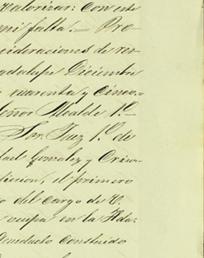 valorizar: Con este
mi falta! — Pro-
sideraciones de res-
guadalupe Diciembre
cuarenta y Cinco.
Señor Alcalde 1º.
Sor. Juez 1º. de
Gonzalez y Criso-
diccion, el primero
del cargo de V.
ocupa en la Hda:
construido